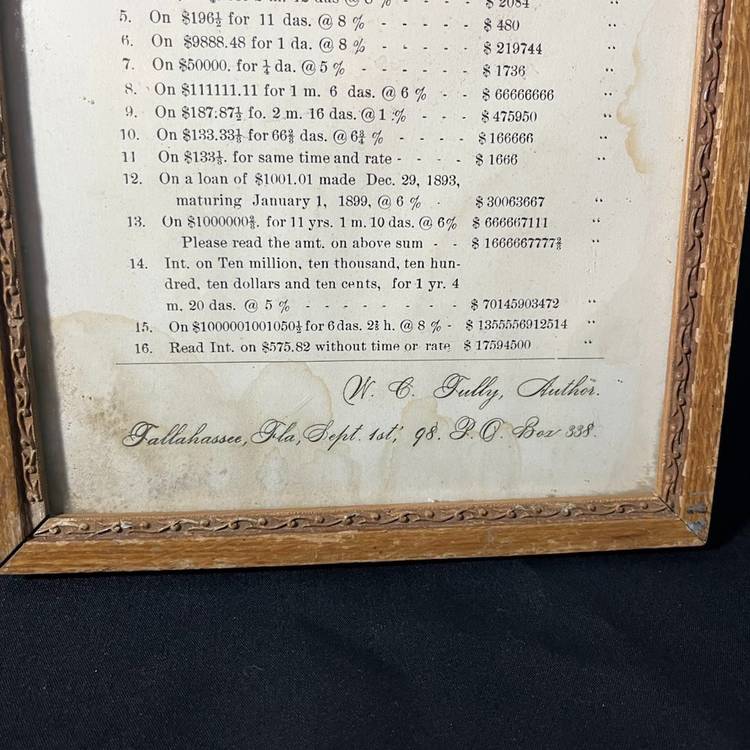 $ 2084
5. On $196½ for 11 das. @ 8 % - - - - $ 480 "
6. On $9888.48 for 1 da. @ 8 % - - - - $ 219744 "
7. On $50000. for ¼ da. @ 5 % - - - - - $ 1736 "
8. On $111111.11 for 1 m. 6 das. @ 6 % - - $ 66666666 "
9. On $187.87½ fo. 2 m. 16 das. @ 1 % - - - $ 475950 "
10. On $133.33⅓ for 66⅔ das. @ 6¾ % - - - - $ 166666 "
11 On $133⅓. for same time and rate - - - - $ 1666 "
12. On a loan of $1001.01 made Dec. 29, 1893,
maturing January 1, 1899, @ 6 % - $ 30063667 "
13. On $1000000⅔. for 11 yrs. 1 m. 10 das. @ 6% $ 666667111 "
Please read the amt. on above sum - - $ 1666667777⅔ "
14. Int. on Ten million, ten thousand, ten hun-
dred, ten dollars and ten cents, for 1 yr. 4
m. 20 das. @ 5 % - - - - - - - $ 70145903472 "
15. On $1000001001050½ for 6 das. 2⅔ h. @ 8 % - $ 1355556912514 "
16. Read Int. on $575.82 without time or rate $ 17594500 "
W. C. Tully, Author.
Tallahassee, Fla, Sept. 1st, 98. P. O. Box 338.